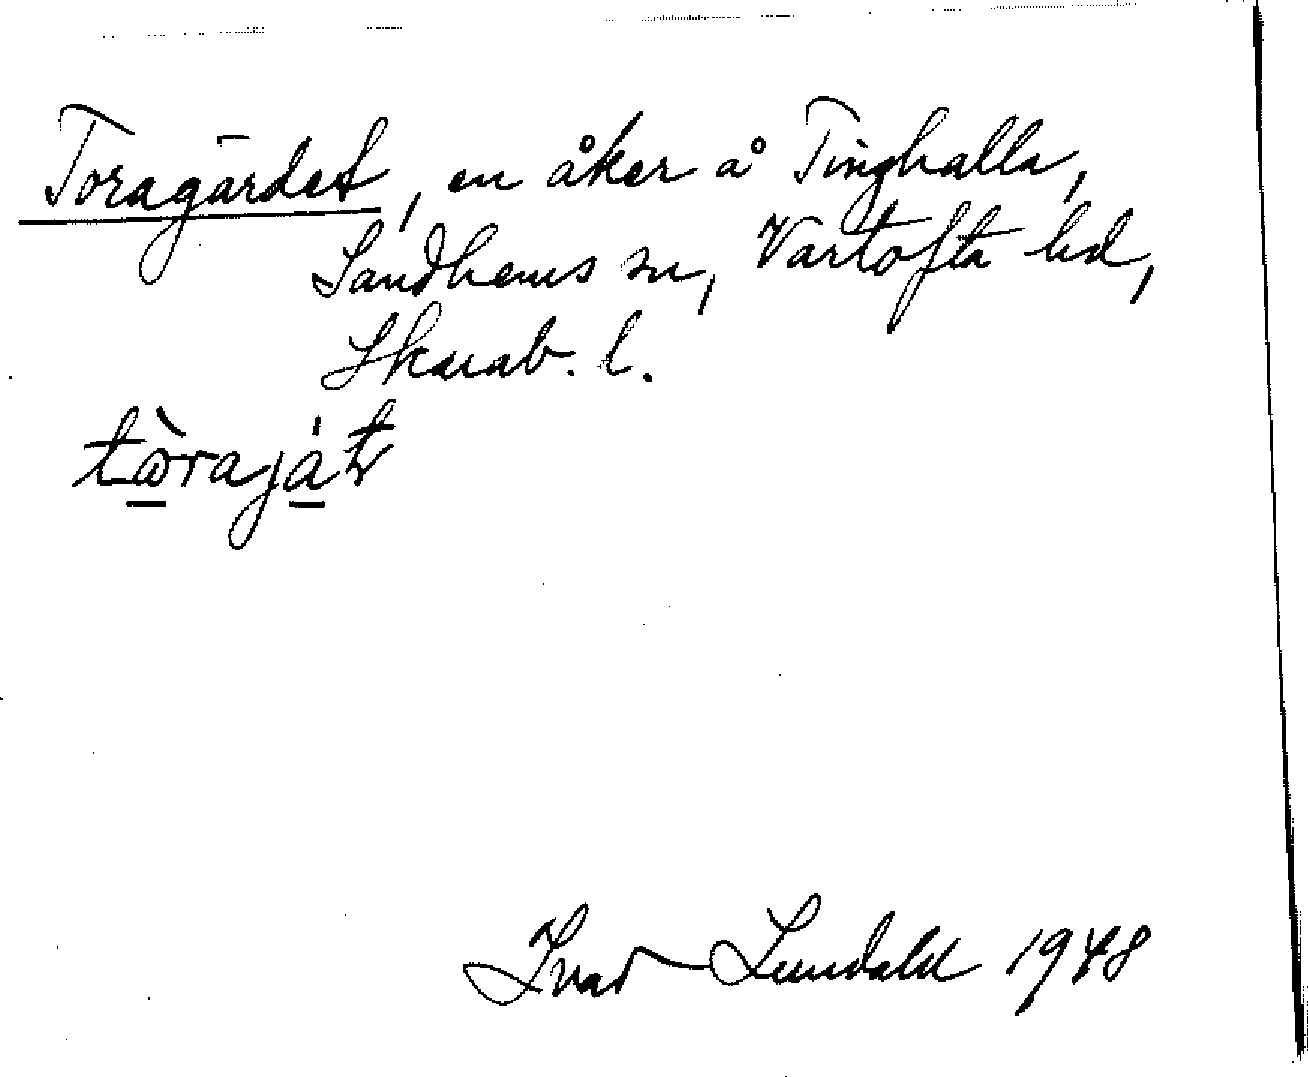 Toragärdet, en åker å Tinghalla,
Sandhems sn, Vartofta hd,
Skarab. l.
Ivar Lundahl 1948